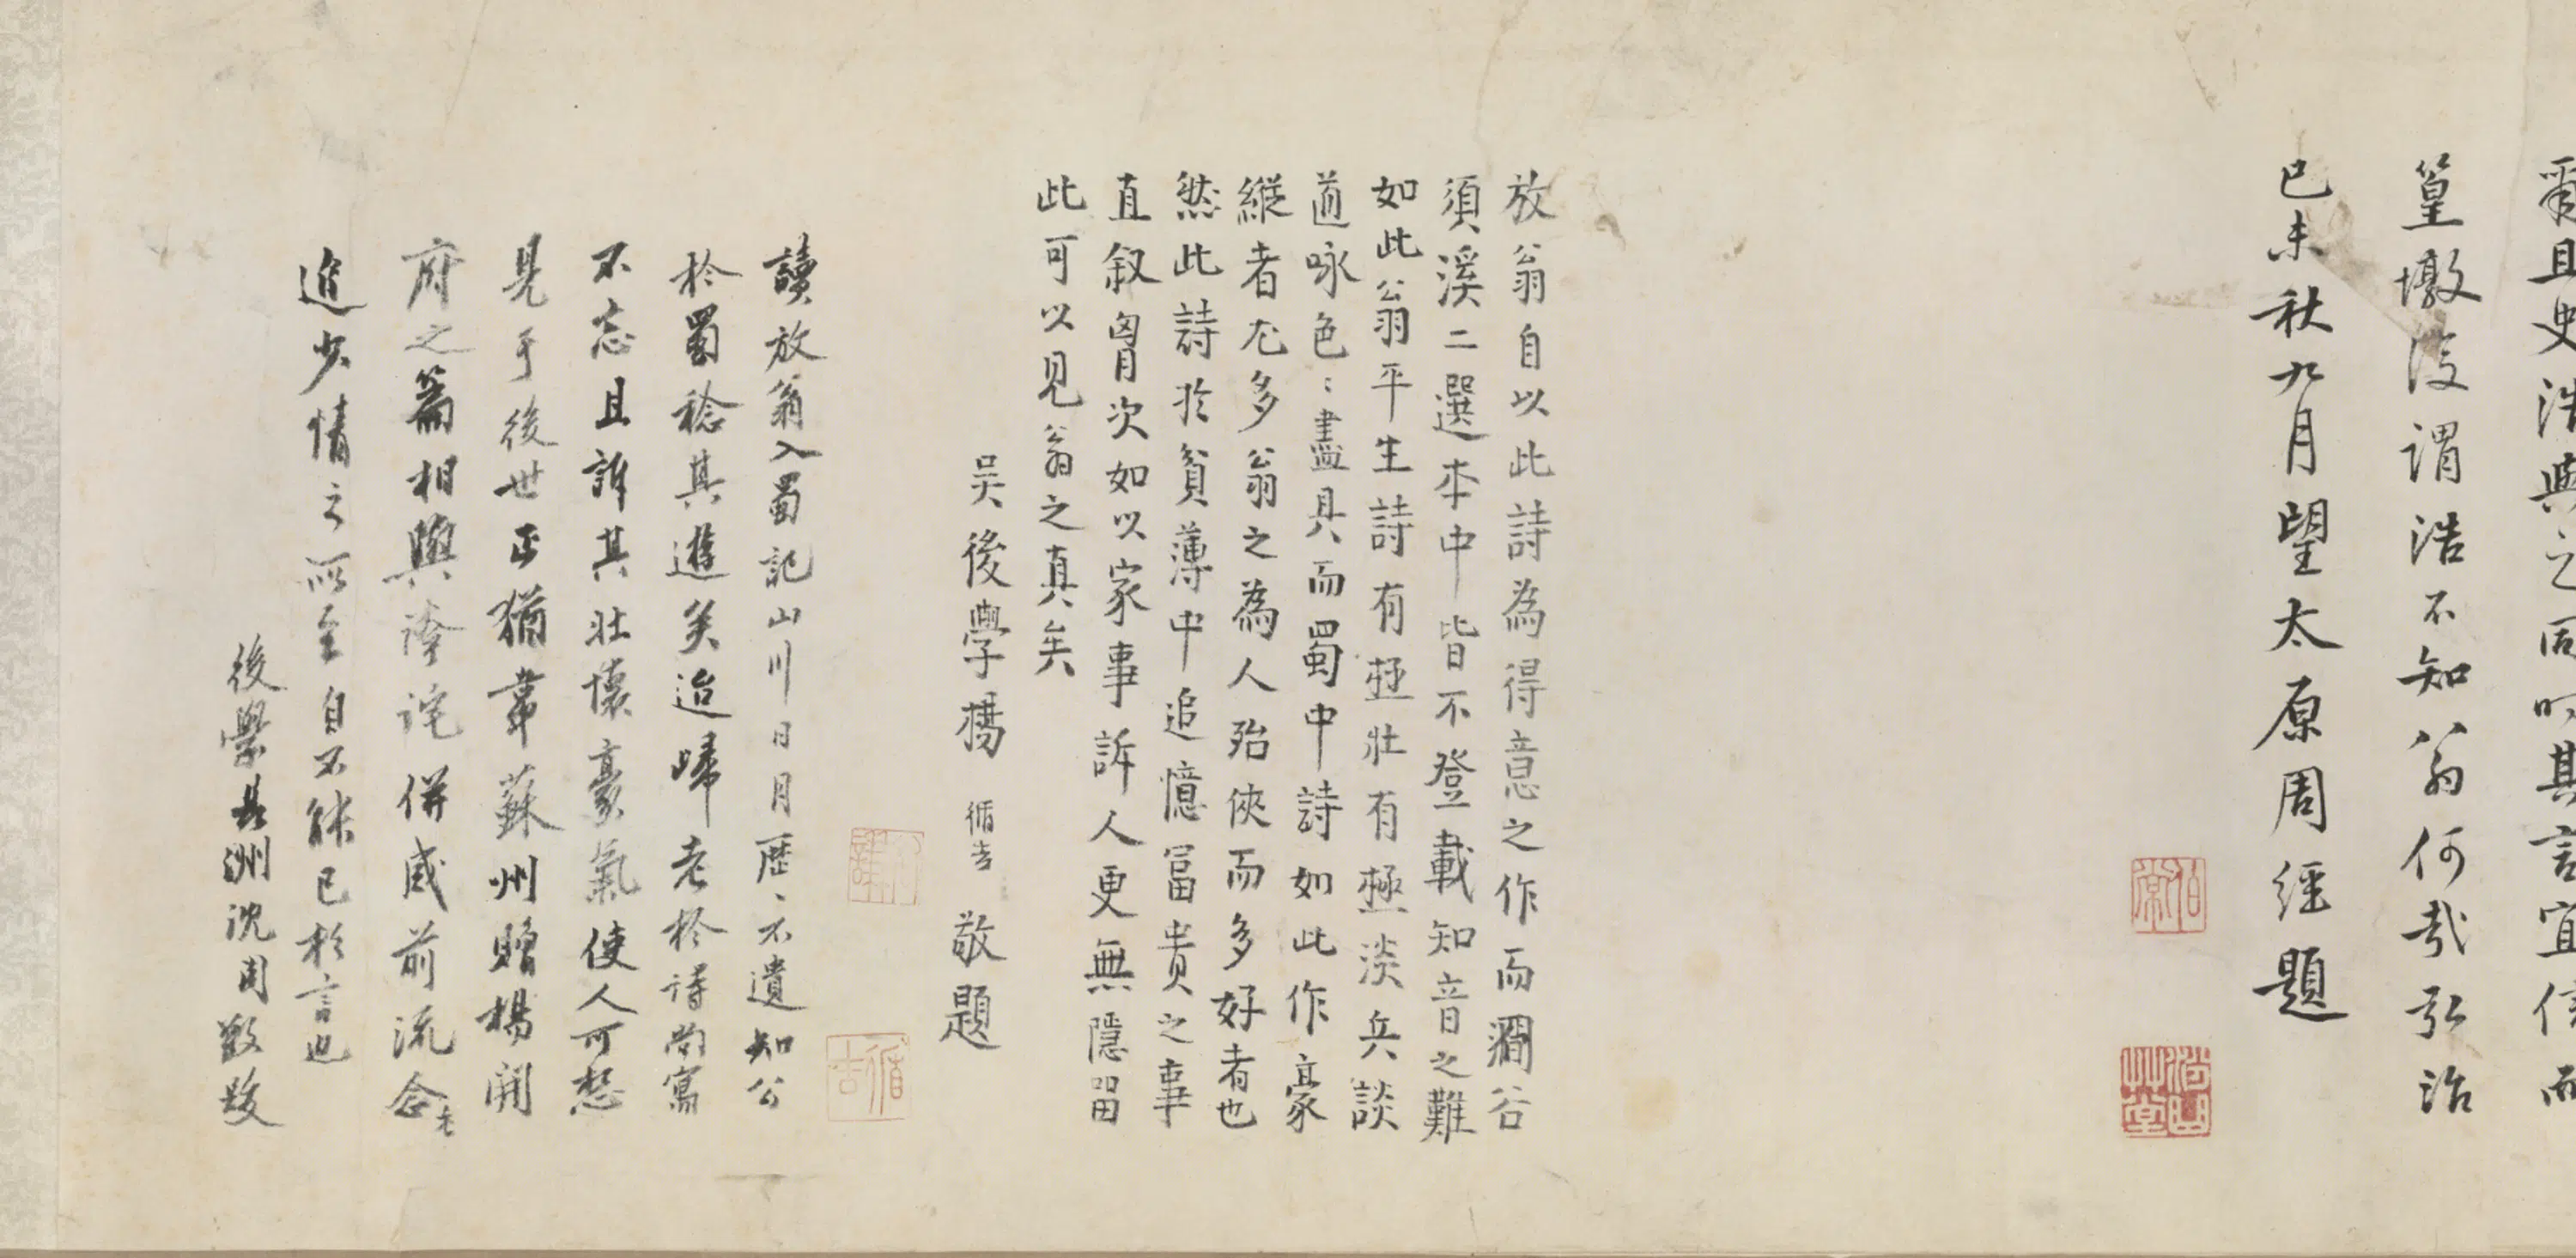 爾且史浩與之同時其言宜信而
篁墩後謂浩不知公翁何哉弘治
己未秋九月望太原周經題
伯常
松山草堂
放翁自以此詩為得意之作而澗谷
須溪二選本中皆不登載知音之難
如此翁平生詩有極壯有極淡兵談
道咏色〻盡具而蜀中詩如此作豪
縱者尤多翁之為人殆俠而多好者也
然此詩於貧薄中追憶富貴之事
直叙胷次如以家事訴人更無隱留
此可以見翁之真矣
吴後學楊循吉敬題
循吉
讀放翁入蜀記山川日月歷〻不遺知公
於蜀稔其進矣迨歸老於詩尚寫
不忘且訴其壯懷豪氣使人可想
見于後世正猶韋蘇州贈楊開
府之篇相與誇詫併感前流念
進少情之所至自不能已於言也
後學長洲沈周敬跋